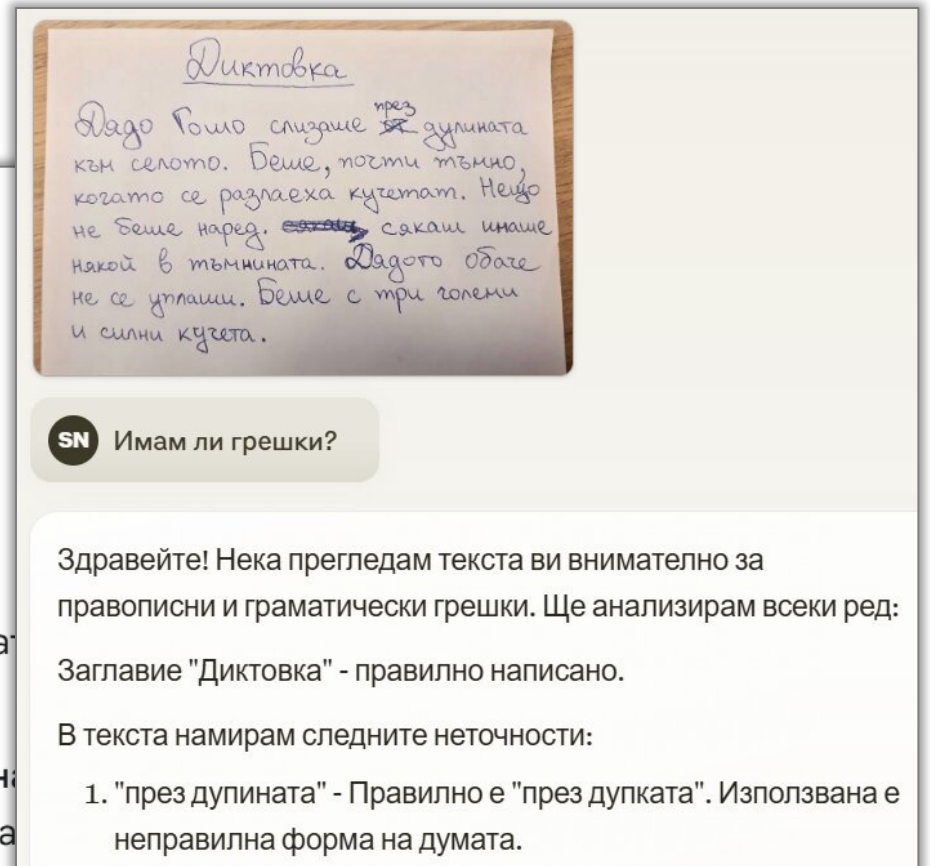 Диктовка
Дядо Гошо слизаше през дулината
към селото. Беше, почти тъмно,
когато се разлаеха кучетат. Нещо
не беше наред. сякаш имаше
някой в тъмнината. Дядото обаче
не се уплаши. Беше с три големи
и силни кучета.
SN Имам ли грешки?
Здравейте! Нека прегледам текста ви внимателно за
правописни и граматически грешки. Ще анализирам всеки ред:
Заглавие "Диктовка" - правилно написано.
В текста намирам следните неточности:
1. "през дупината" - Правилно е "през дупката". Използвана е
неправилна форма на думата.